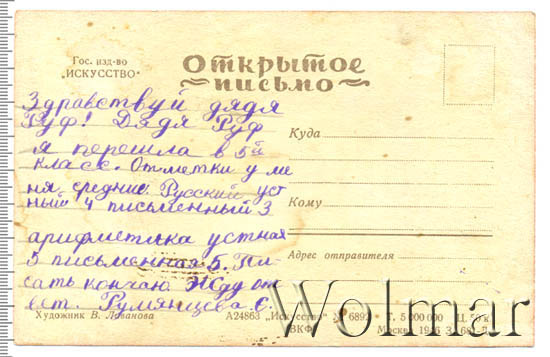 Гос. изд-во
„ИСКУССТВО"
Открытое
письмо
Здравствуй дядя
Руф! Дядя Руф
я перешла в 5й
класс. Отметки у ме
ня средние. Русский уст
ный 4 письменный 3
арифметика устная
5 письменная 5. Пи
сать кончаю Жду от
вет. Румянцева С.
Куда
Кому
Адрес отправителя
Художник В. Ливанова
А24863 „Искусство" № 6892 Т. 5 000 000 Ц. 50 к.
ВКФ Москва 1946 З. 681-Л
Wolmar